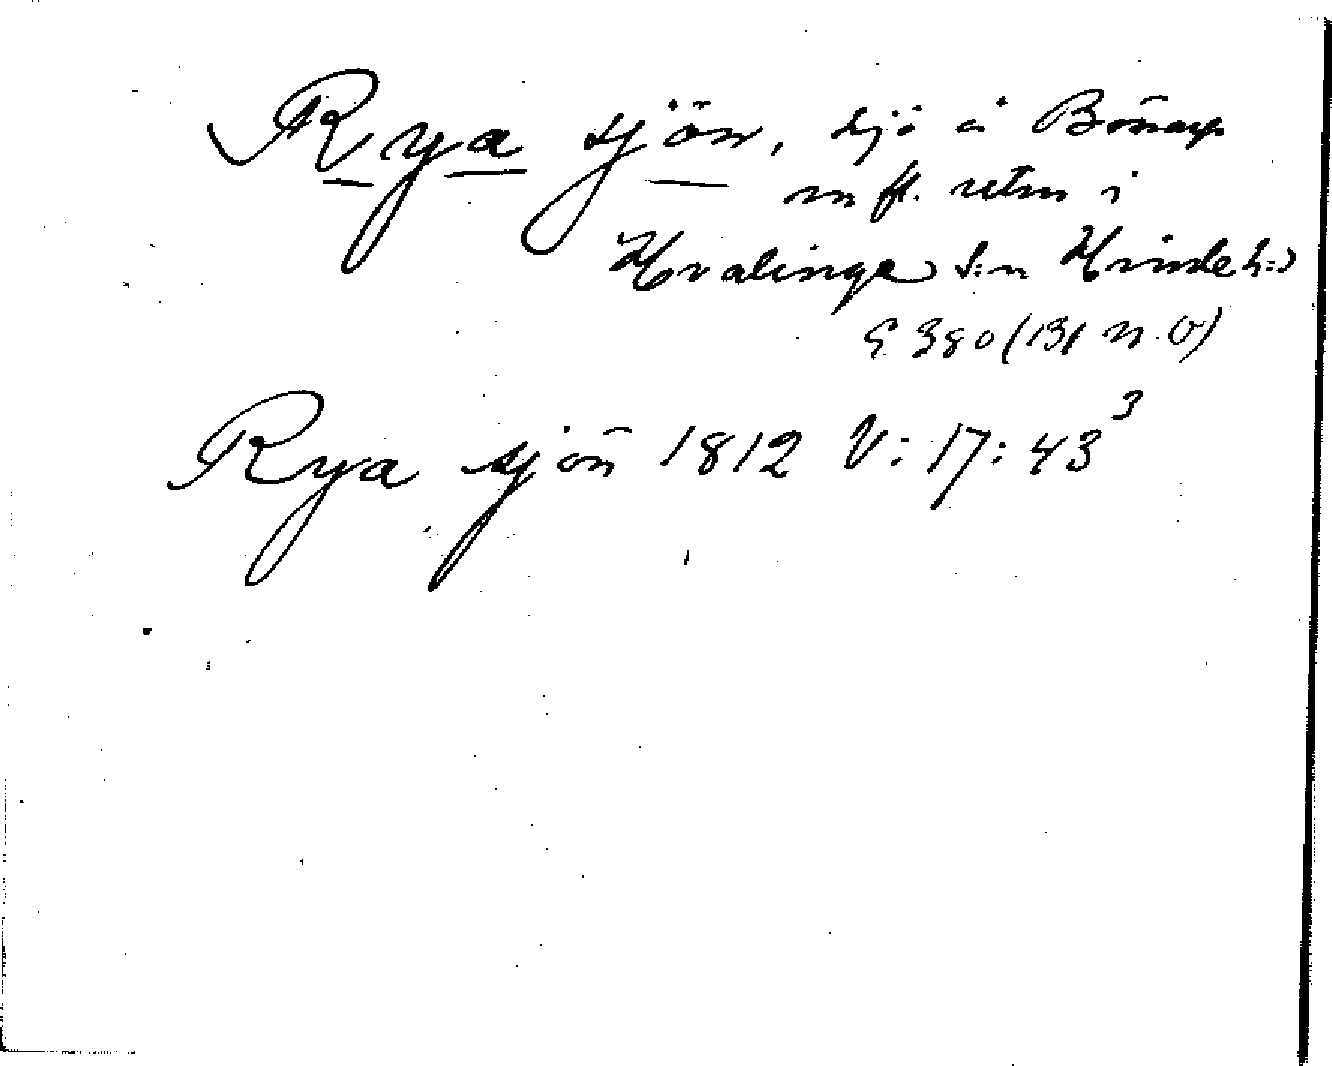 Rya sjön, sjö å Bönarp
m fl. utm i
Hvalinge s:n Himleh:d
E 380 (Bl N.O)
Rya sjön 1812 V:17:43³